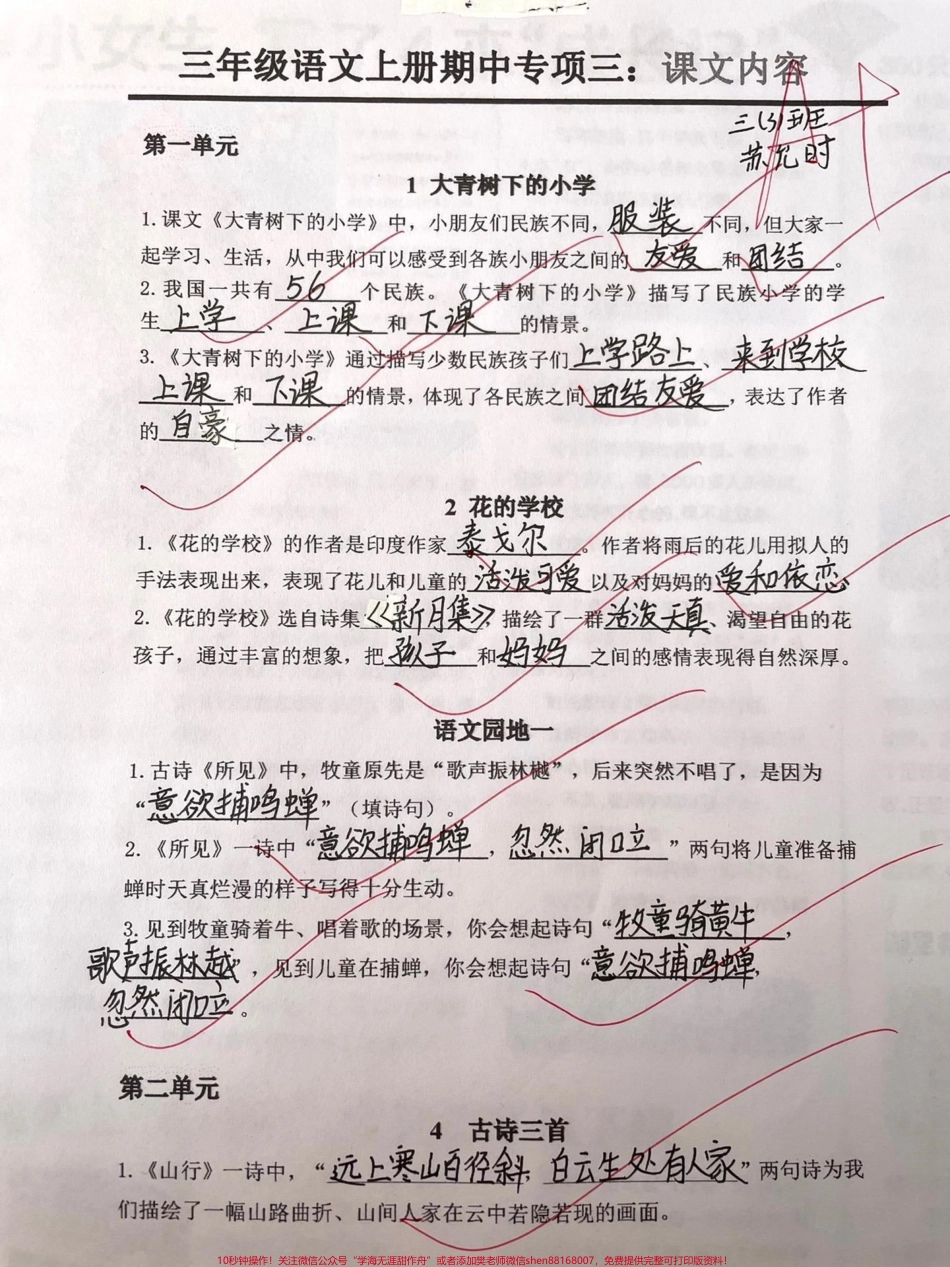 三年级语文上册期中专项三：课文内容
三(3)班
苏允时
第一单元
1 大青树下的小学
1.课文《大青树下的小学》中，小朋友们民族不同，服装不同，但大家一
起学习、生活，从中我们可以感受到各族小朋友之间的友爱和团结。
2.我国一共有56个民族。《大青树下的小学》描写了民族小学的学
生上学、上课和下课的情景。
3.《大青树下的小学》通过描写少数民族孩子们上学路上、来到学校
上课和下课的情景，体现了各民族之间团结友爱，表达了作者
的自豪之情。
2 花的学校
1.《花的学校》的作者是印度作家泰戈尔。作者将雨后的花儿用拟人的
手法表现出来，表现了花儿和儿童的活泼可爱以及对妈妈的爱和依恋
2.《花的学校》选自诗集《新月集》，描绘了一群活泼天真、渴望自由的花
孩子，通过丰富的想象，把孩子和妈妈之间的感情表现得自然深厚。
语文园地一
1.古诗《所见》中，牧童原先是“歌声振林樾”，后来突然不唱了，是因为
“意欲捕鸣蝉”（填诗句）。
2.《所见》一诗中“意欲捕鸣蝉，忽然闭口立”两句将儿童准备捕
蝉时天真烂漫的样子写得十分生动。
3.见到牧童骑着牛、唱着歌的场景，你会想起诗句“牧童骑黄牛，
歌声振林越”，见到儿童在捕蝉，你会想起诗句“意欲捕鸣蝉，
忽然闭口立。
第二单元
4 古诗三首
1.《山行》一诗中，“远上寒山百径斜，白云生处有人家”两句诗为我
们描绘了一幅山路曲折、山间人家在云中若隐若现的画面。
10秒钟操作！关注微信公众号“学海无涯甜作舟”或者添加樊老师微信shen88168007，免费提供完整可打印版资料！